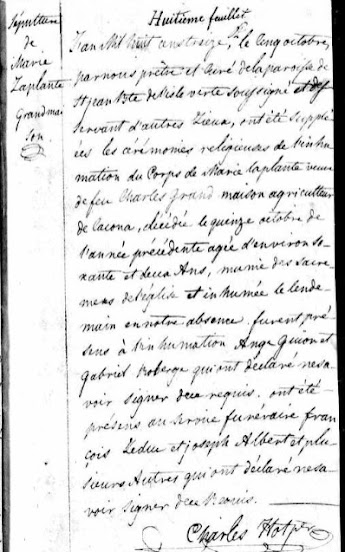 Huitième feuillet
Sépulture
de
Marie
Laplante
Grandmai
son
L'an Mil huit cent seize, le cinq octobre,
par nous prêtre et curé de la paroisse de
St jean Bte de l'isle verte soussigné et des
servant d'autres Lieux, ont été supplé
ées les cérémonies religieuses de l'inhu
mation du Corps de Marie laplante veuve
de feu Charles Grand maison agriculteur
de Cacona, décédée le quinze octobre de
l'année précédente agée d'environ so
xante et deux Ans, munie des Sacre
mens de l'église et inhumée le lende
main en notre absence. furent pré
sens à l'inhumation Ange Guion et
Gabriel Roberge qui ont déclaré ne sa
voir signer de ce requis. ont été
présens au service funéraire fran
çois Leduc et joseph Albert et plu
sieurs Autres qui ont déclaré ne sa
voir signer de ce Requis.
Charles Hot